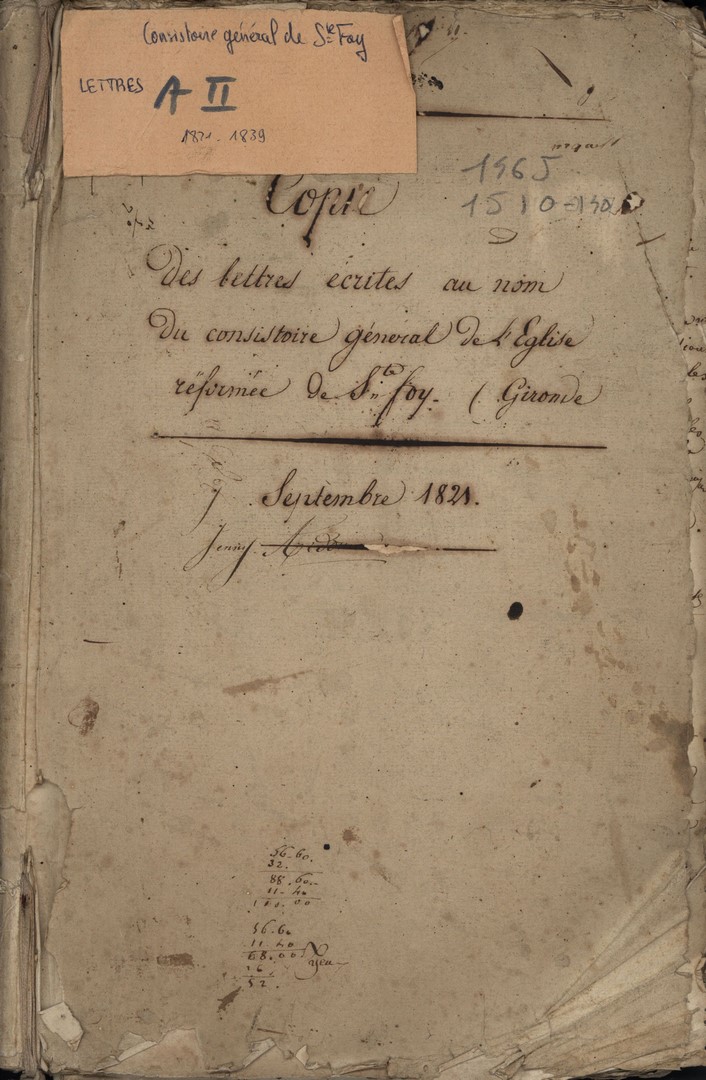 Consistoire général de Ste Foy
LETTRES A II
1821 - 1839
1965
1510
Copie
Des Lettres écrites au nom
Du consistoire géneral De L'Eglise
réformée De Ste foy. (Gironde
7 Septembre 1821.
Jenny
56-60.
32.
88.60.
11-40
100.00
56.60
11 40
68.00
16.
52.